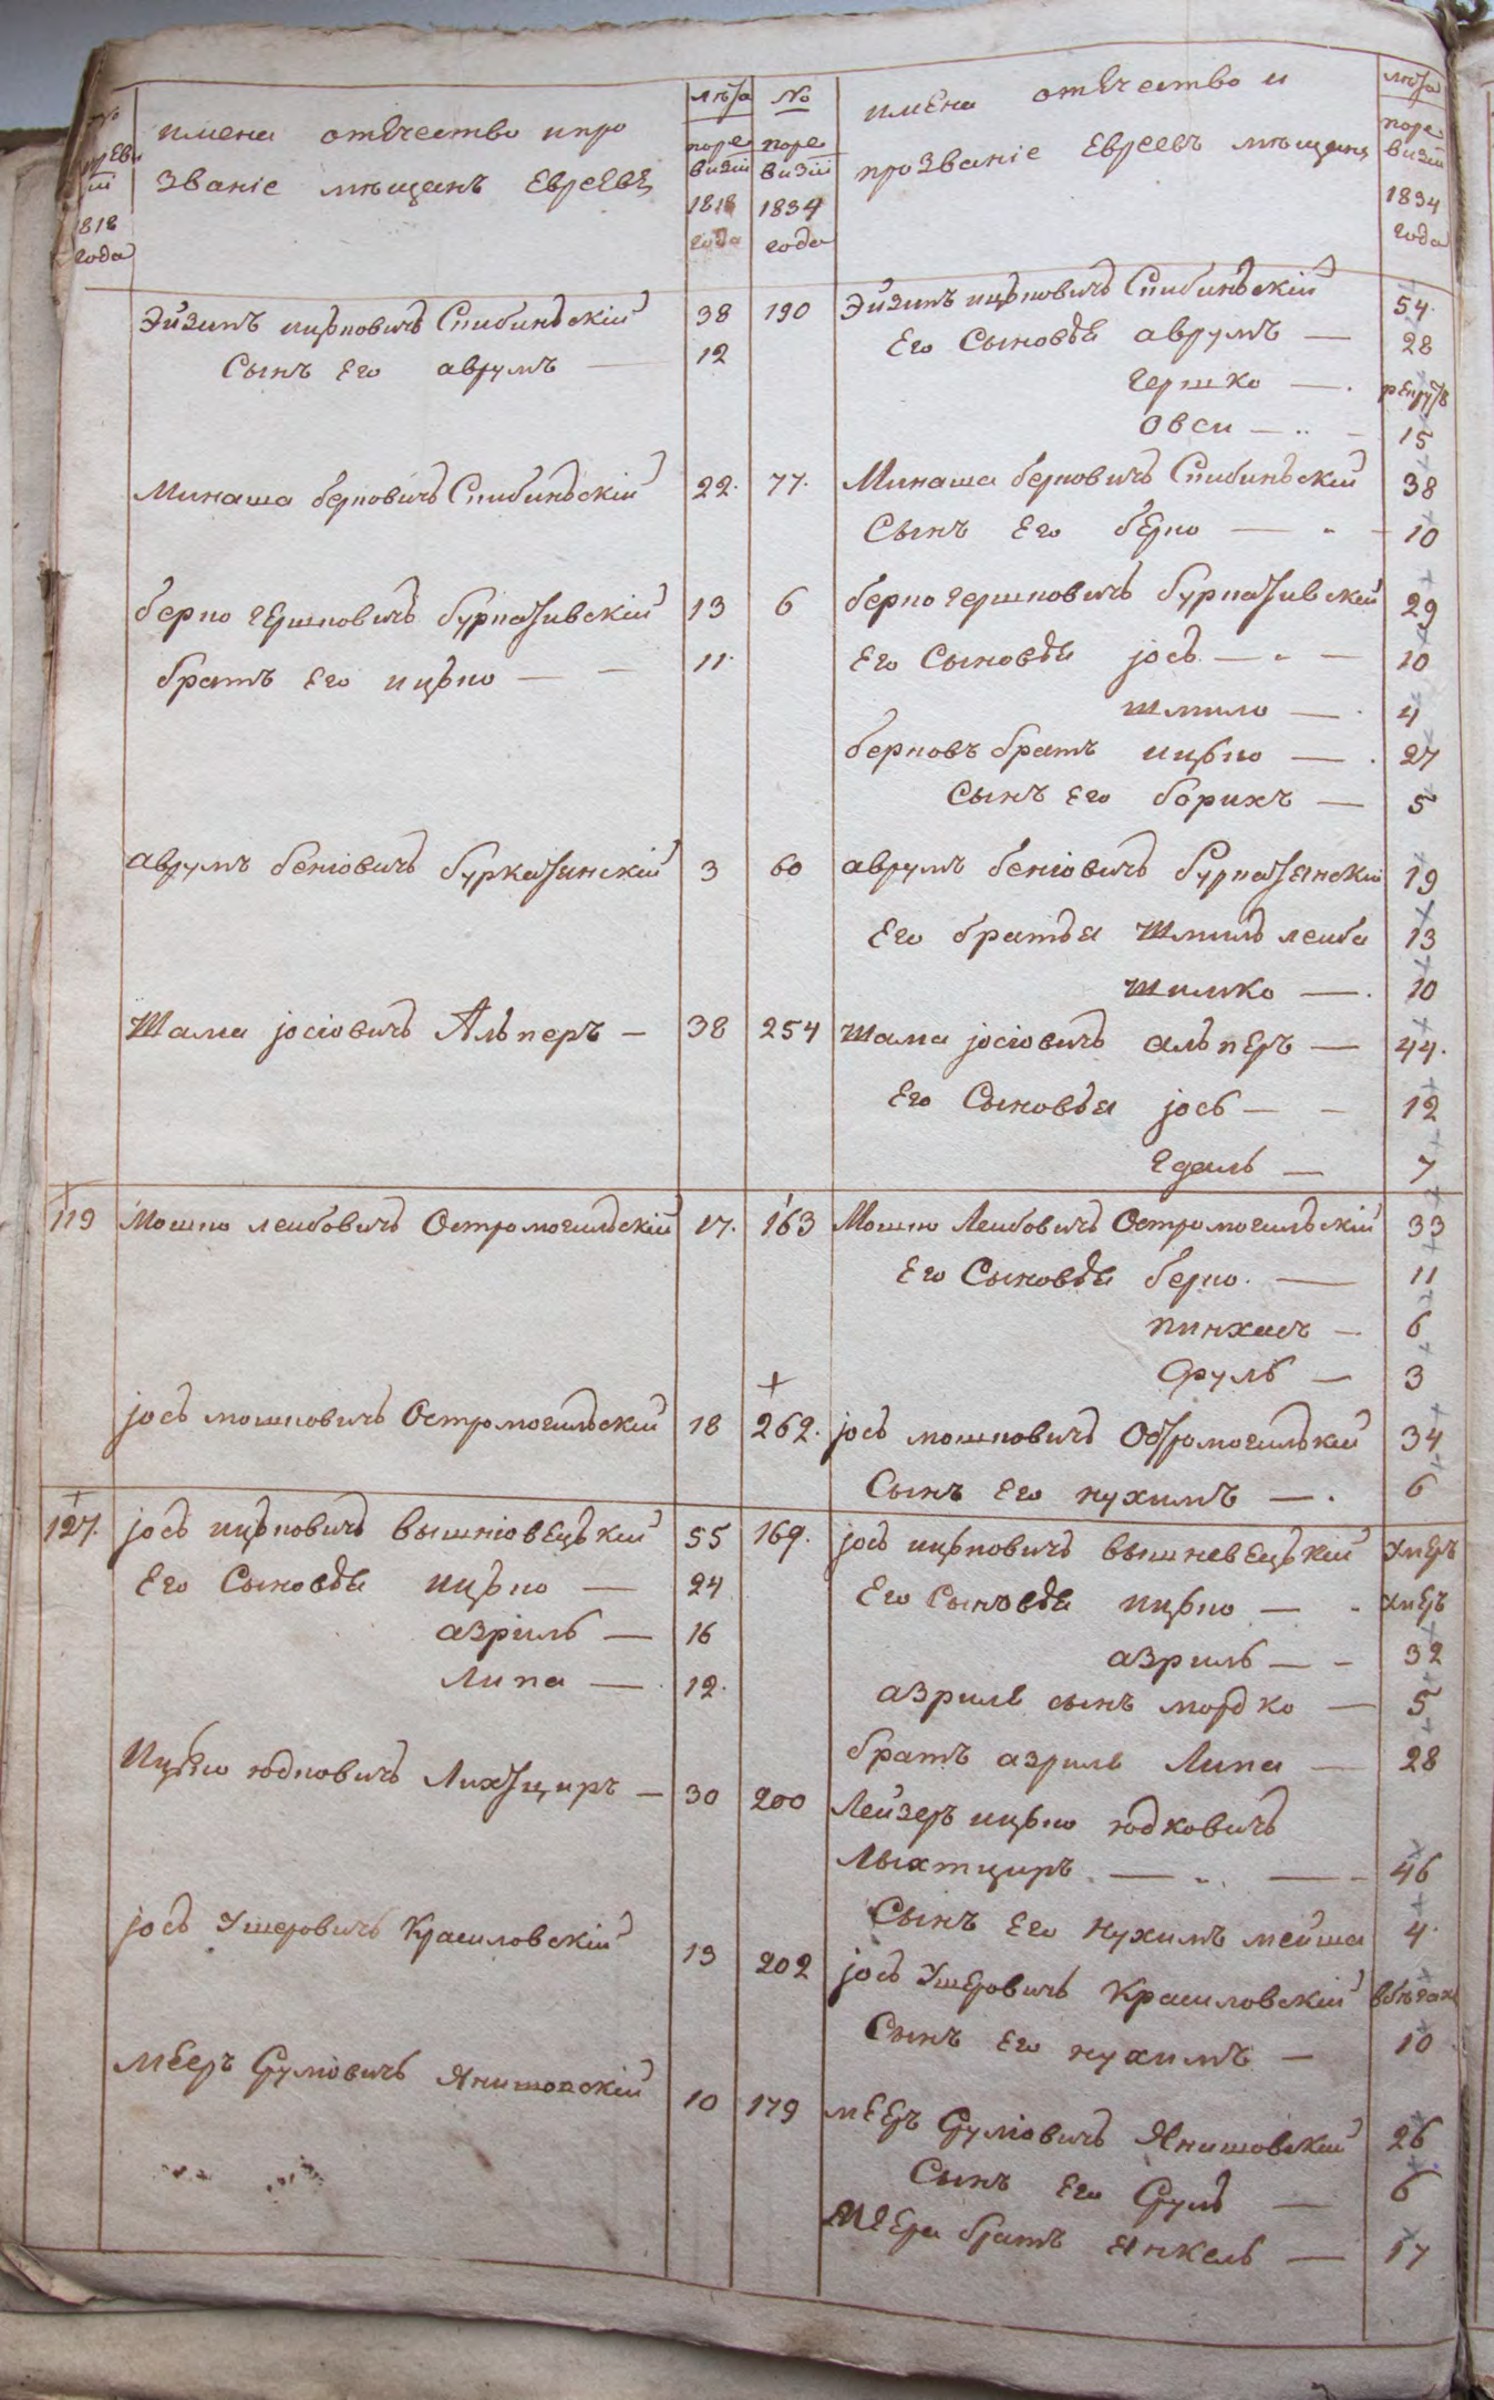 имена отѣчество и про
званіе мѣщанъ Евреевъ
1818
года
лѣта
поре
визіи
1818
года
№
поре
визіи
1834
года
имена отѣчество и
прозваніе Евреевъ мѣщанъ
лѣта
поре
визіи
1834
года
Эйзикъ ицковичъ 38 190 Эйзикъ ицковичъ 54
Сынъ Его аврумъ — 12 Его Сыновья аврумъ — 28
гершко —
овси — 15
Минаша берковичъ 22. 77. Минаша берковичъ 38
Сынъ Его берко — 10
берко гершковичъ 13 6 берко гершковичъ 29
братъ Его ицько — 11. Его Сыновья іось — 10
шмило — 4
берковъ братъ ицько — 27
Сынъ Его борихъ — 5
аврумъ беніовичъ буркатинскій 3 60 аврумъ беніовичъ 19
Его братья Шмиль леиба 13
шилико — 10
Шама іосіовичъ Альперъ — 38 254 Шама іосіовичъ альперъ — 44.
Его Сыновья іось — 12
Едель — 7
119 Мошко леибовичъ Остромогильскій 17. 163 Мошко Леибовичъ Остромогильскій 33
Его Сыновья берко. — 11
пинхасъ — 6
Сруль — 3
іось мошковичъ Остромогильскій 18 262. іось мошковичъ 34
Сынъ Его нухимъ — 6
127. іось ицковичъ вышніовецъкій 55 169. іось ицковичъ вышневецъкій умеръ
Его Сыновья ицько — 24 Его Сыновья ицько — умеръ
азріиль — 16 азриль — 32
Липа — 12. азриля сынъ мордко — 5
братъ азриля Липа — 28
Ицько юдковичъ Лихтциръ — 30 200 Лейзеръ ицько юдковичъ
Лыхтциръ — 46
Сынъ Его Нухимъ меиша 4
іось Ушеровичъ Красиловскій 13 202 іось Ушеровичъ Красиловскій вбѣгахъ
Сынъ Его нухимъ — 10
мееръ Сруліовичъ Янишовскій 10 179 мееръ Сруліовичъ Янишовскій 26
Сынъ Его Сруль — 6
меера братъ янкель — 17